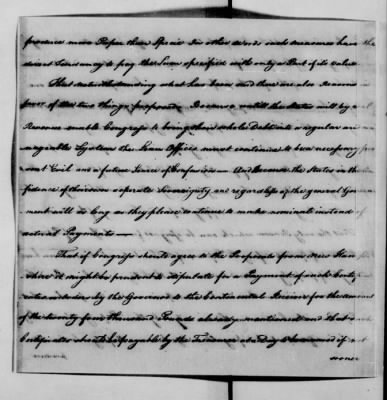 produce more Paper than Specie In other Words such measures have the
direct Tendency to pay the Sum specified with only a Part of its value
But notwithstanding what has been said there are also Reasons in
favor of the two things proposed. Because untill the States will by
Revenue enable Congress to bring their whole Debt into a regular
Systems the Loan Offices must continue to be a necessary
Evil and a future Source of Confusion And because the States in the
of their own separate Sovereignty and regardless of the general Govern
ment will as long as they please continue to make nominal instead of
actual Payments—
That if Congress should agree to the Proposals from New Hamp
shire it might be prudent to stipulate for a Payment of such Certifi
cates by the Governor to the Continental Receiver for the amount
of the twenty four thousand Pounds already mentioned and that such
Certificates should be payable by the Treasurer at a Day to be named if not
sooner